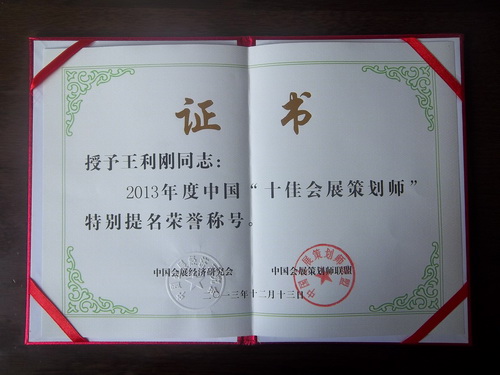 证书
授予王利刚同志：
2013年度中国“十佳会展策划师”
特别提名荣誉称号。
中国会展经济研究会 中国会展策划师联盟
二〇一三年十二月十三日
中国会展策划师联盟